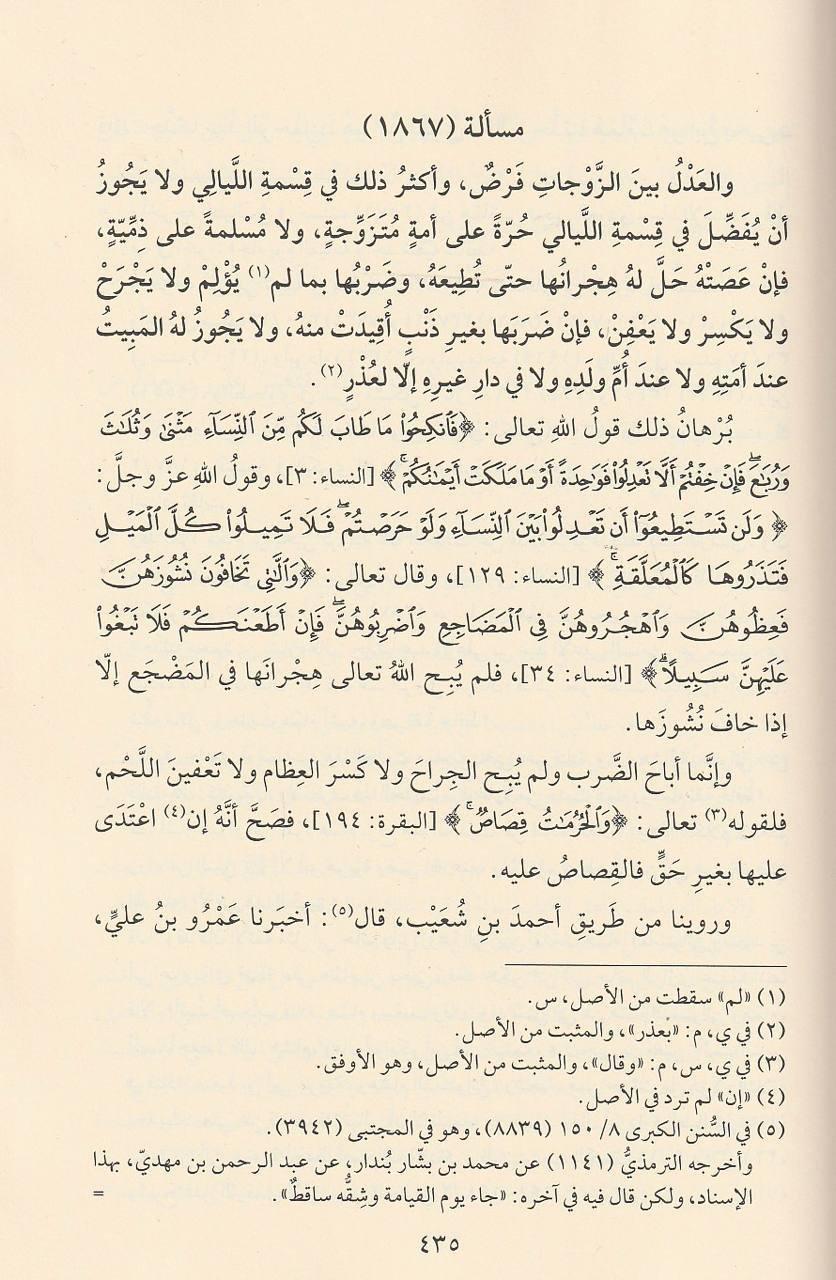 مسألة (١٨٦٧)
والعَدْلُ بينَ الزَّوْجاتِ فَرْضٌ، وأكثرُ ذلك في قِسْمةِ اللَّيالِي ولا يَجُوزُ
أنْ يُفَضِّلَ في قِسْمةِ اللَّيالي حُرّةً على أمةٍ مُتَزَوِّجةٍ، ولا مُسْلمةً على ذِمِّيّةٍ،
فإنْ عَصَتْهُ حَلَّ لهُ هِجْرانُها حتّى تُطِيعَهُ، وضَرْبُها بما لم(١) يُؤْلِمْ ولا يَجْرَحْ
ولا يَكْسِرْ ولا يَعْفِنْ، فإنْ ضَرَبَها بغيرِ ذَنْبٍ أُقِيدَتْ منهُ، ولا يَجُوزُ لهُ المَبِيتُ
عندَ أمَتِهِ ولا عندَ أُمِّ ولَدِهِ ولا في دارِ غيرِهِ إلّا لعُذْرٍ(٢).
بُرْهانُ ذلك قولُ اللهِ تعالى: ﴿فَٱنكِحُوا۟ مَا طَابَ لَكُم مِّنَ ٱلنِّسَآءِ مَثْنَىٰ وَثُلَـٰثَ
وَرُبَـٰعَ ۖ فَإِنْ خِفْتُمْ أَلَّا تَعْدِلُوا۟ فَوَٰحِدَةً أَوْ مَا مَلَكَتْ أَيْمَـٰنُكُمْ ۚ﴾ [النساء: ٣]، وقولُ اللهِ عزَّ وجلَّ:
﴿وَلَن تَسْتَطِيعُوٓا۟ أَن تَعْدِلُوا۟ بَيْنَ ٱلنِّسَآءِ وَلَوْ حَرَصْتُمْ ۖ فَلَا تَمِيلُوا۟ كُلَّ ٱلْمَيْلِ
فَتَذَرُوهَا كَٱلْمُعَلَّقَةِ ۚ﴾ [النساء: ١٢٩]، وقال تعالى: ﴿وَٱلَّـٰتِى تَخَافُونَ نُشُوزَهُنَّ
فَعِظُوهُنَّ وَٱهْجُرُوهُنَّ فِى ٱلْمَضَاجِعِ وَٱضْرِبُوهُنَّ ۖ فَإِنْ أَطَعْنَكُمْ فَلَا تَبْغُوا۟
عَلَيْهِنَّ سَبِيلًا ۗ﴾ [النساء: ٣٤]، فلم يُبِح اللهُ تعالى هِجْرانَها في المَضْجَع إلّا
إذا خافَ نُشُوزَها.
وإنَّما أباحَ الضَّرب ولم يُبِح الجِراحَ ولا كَسْرَ العِظام ولا تَعْفينَ اللَّحْم،
فلقوله(٣) تعالى: ﴿وَٱلْحُرُمَـٰتُ قِصَاصٌ ۚ﴾ [البقرة: ١٩٤]، فصَحَّ أنَّهُ إن(٤) اعْتَدَى
عليها بغيرِ حَقٍّ فالقِصاصُ عليه.
وروينا من طَريقِ أحمدَ بنِ شُعَيْب، قال(٥): أخبَرنا عَمْرُو بنُ عليٍّ،
(١) «لم» سقطت من الأصل، س.
(٢) في ي، م: «بعذر»، والمثبت من الأصل.
(٣) في ي، س، م: «وقال»، والمثبت من الأصل، وهو الأوفق.
(٤) «إن» لم ترد في الأصل.
(٥) في السُّنن الكبرى ٨/ ١٥٠ (٨٨٣٩)، وهو في المجتبى (٣٩٤٢).
وأخرجه الترمذيُّ (١١٤١) عن محمد بن بشّار بُندار، عن عبد الرحمن بن مهديّ، بهذا
الإسناد، ولكن قال فيه في آخره: «جاء يوم القيامة وشِقُّه ساقطٌ». =
٤٣٥